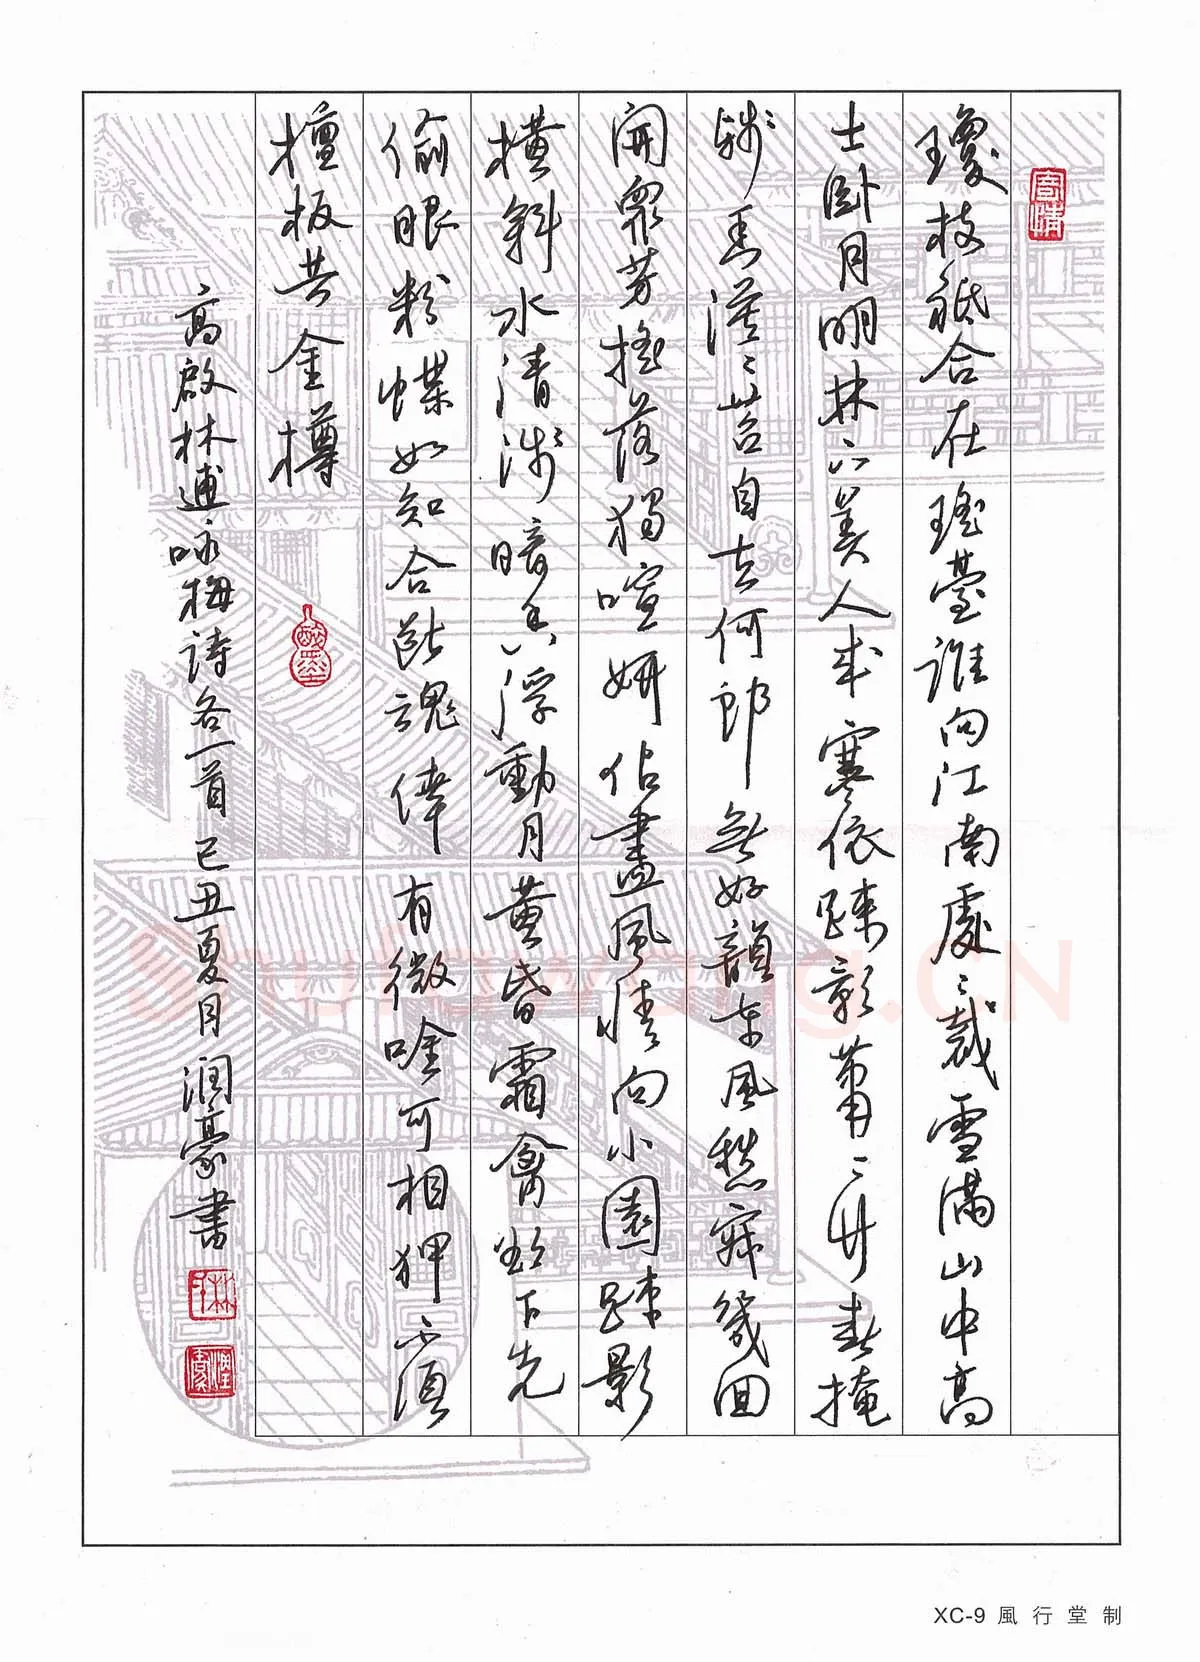 瓊枝祗合在瑤臺誰向江南處〻裁雪滿山中高
士臥月明林下美人來寒依疎影蕭〻竹春掩
殘香漠〻苔自去何郎無好韻東風愁寂幾回
開眾芳搖落獨喧妍佔盡風情向小園疎影
橫斜水清淺暗香浮動月黃昏霜禽欲下先
偷眼粉蝶如知合斷魂倖有微唫可相狎不須
檀板共金樽
高啟林逋咏梅詩各一首己丑夏月润豪書
潤豪
Shufawang.CN
XC-9 風行堂制